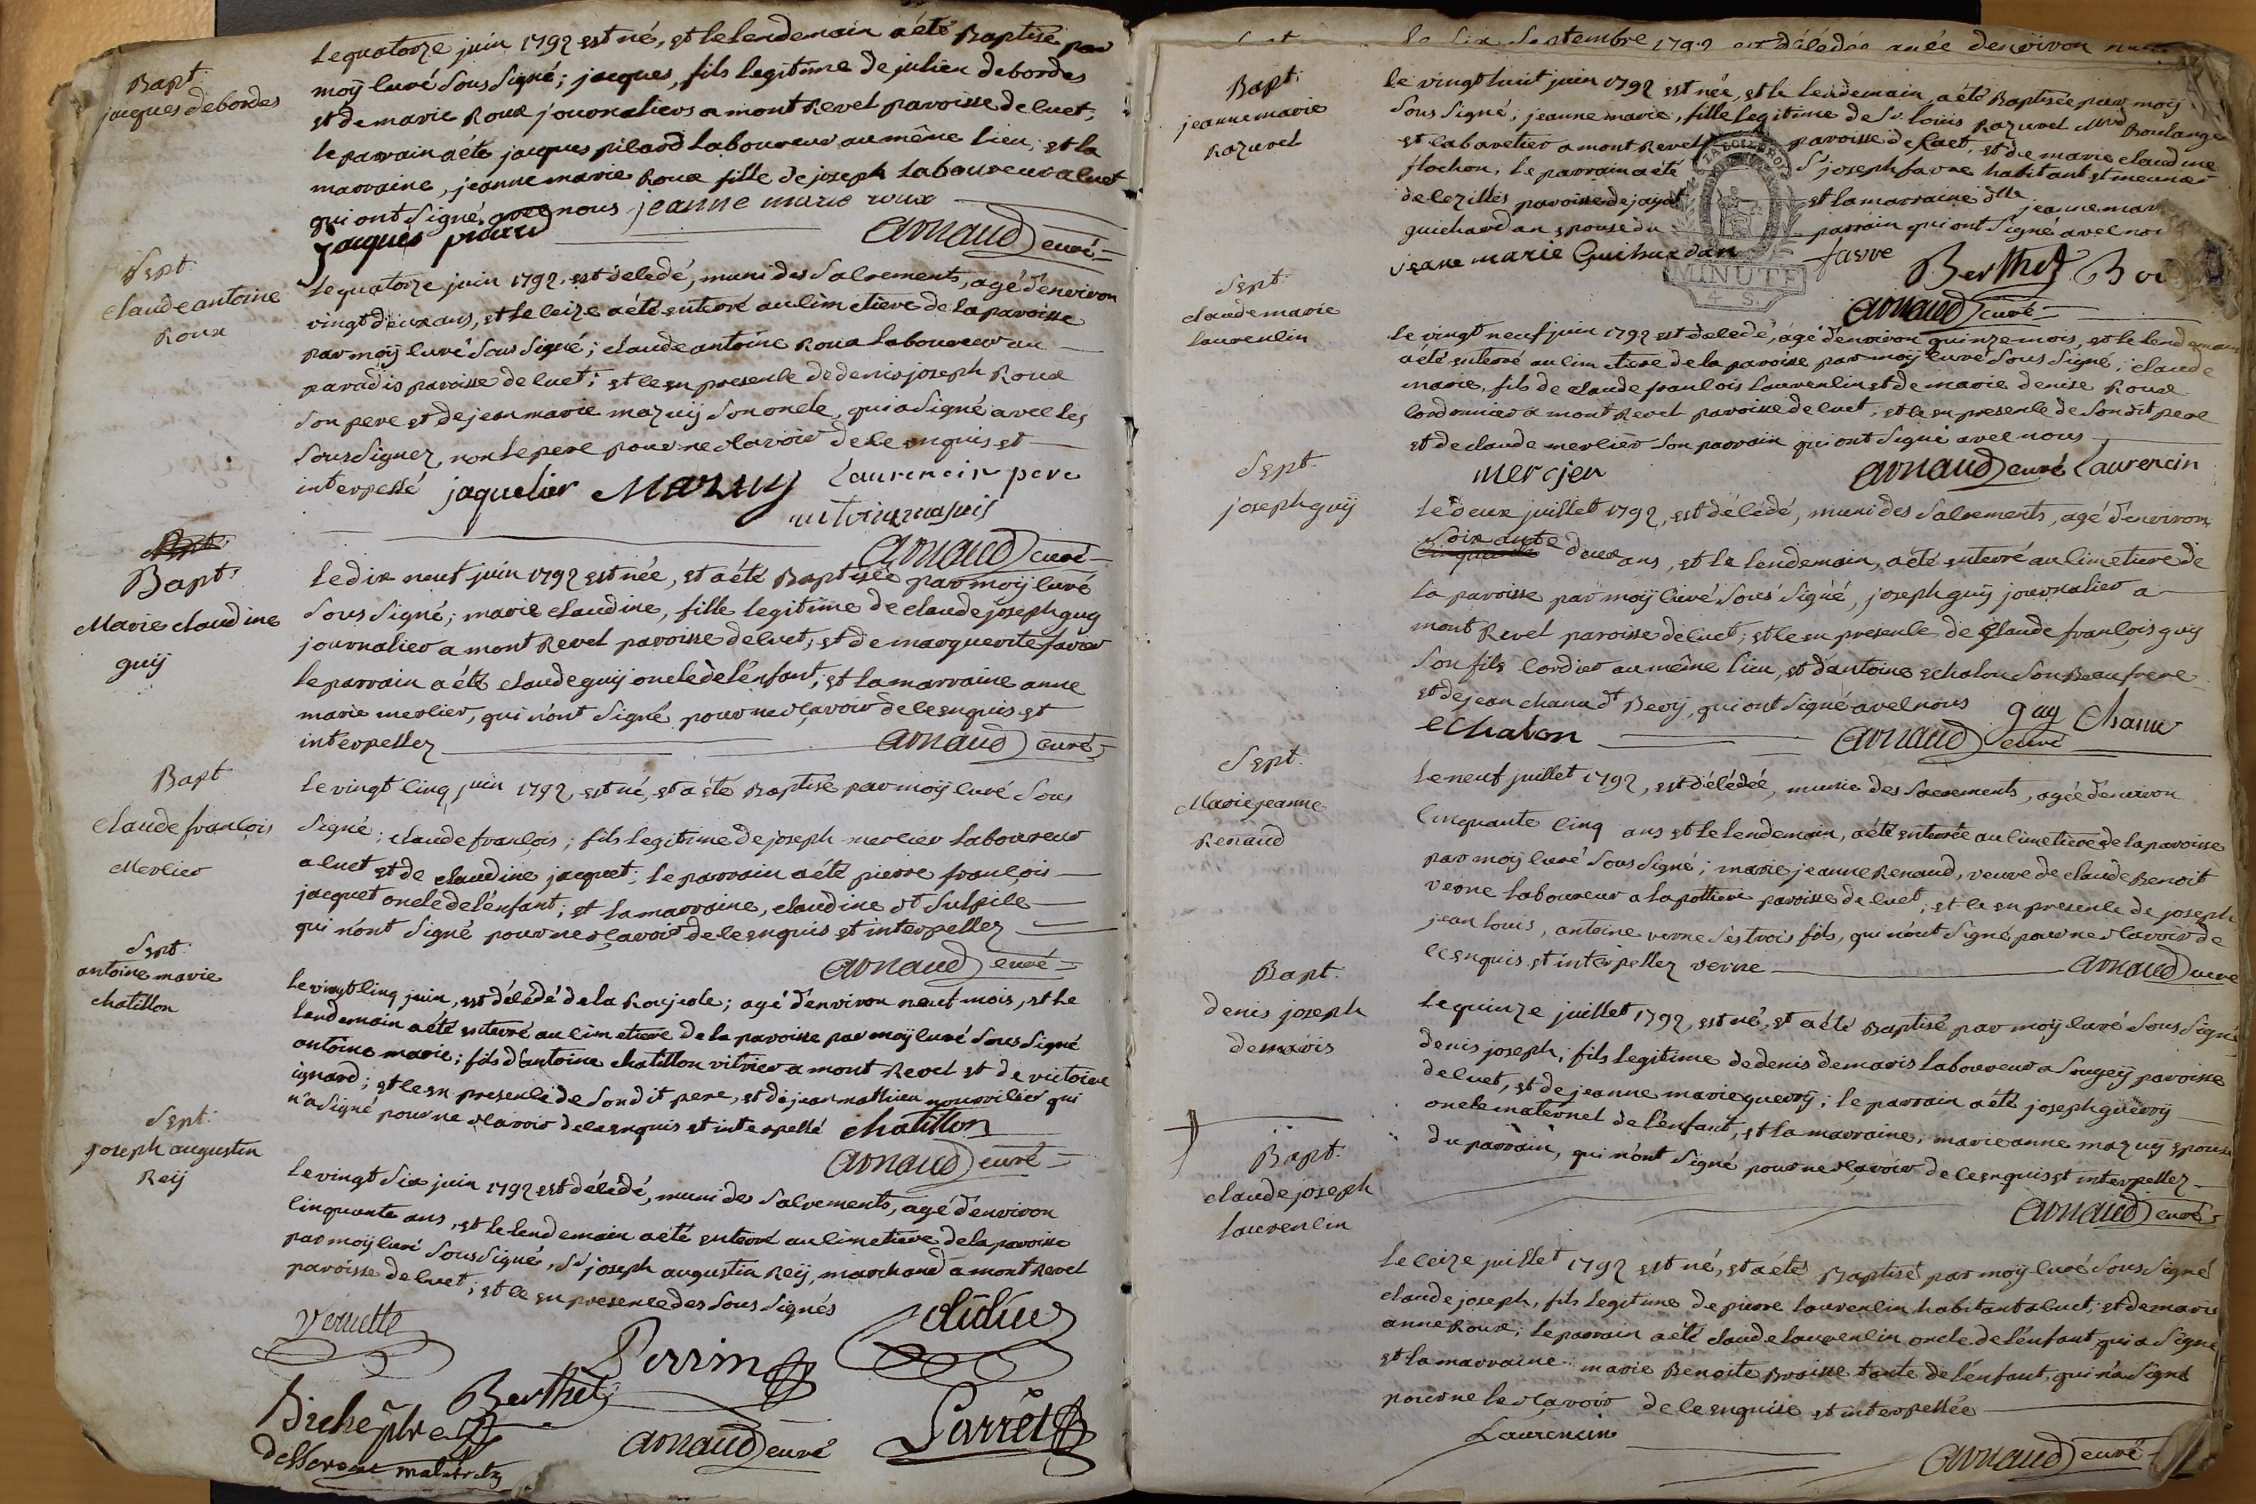 Bapt.
jacques debordes
Le quatorze juin 1792 est né, et le lendemain a été Baptisé par
moÿ Curé Sous Signé ; jacques, fils legitime de julien debordes
et de marie Roux journaliers a mont Revel paroisse de Cuet,
le parrain a été jacques pilard Laboureur au même lieu, et la
marraine, jeanne marie Roux fille de joseph Laboureur a Cuet
qui ont Signé avec nous jeanne marie roux
jaques
arnaud curé
Sept.
claude antoine
Roux
Le quatorze juin 1792, est décédé, muni des Sacrements, agé d'environ
vingt deux ans, et le Seize a été enterré au Cimetiere de la paroisse
par moÿ Curé Sous Signé ; claude antoine Roux Laboureur au
paradis paroisse de Cuet ; et ce en presence de denis joseph Roux
Son pere et de jean marie mazuÿ Son oncle, qui a Signé avec les
Sous Signez, non le pere pour ne Scavoir de ce enquis et
interpellé jaquelier Mazuy Laurencin pere
arnaud curé
Bapt.
Marie claudine
guÿ
Le dix neuf juin 1792 est née, et a été Baptisée par moÿ Curé
Sous Signé ; marie claudine, fille legitime de claude joseph guy
journalier a mont Revel paroisse de Cuet, et de marguerite favier
le parrain a été claude guÿ oncle de l'enfant, et la marraine anne
marie mercier, qui n'ont Signé pour ne Sçavoir de ce enquis et
interpellez arnaud curé
Bapt
claude françois
Mercier
Le vingt Cinq juin 1792, est né, et a été Baptisé par moÿ Curé Sous
Signé ; claude françois ; fils legitime de joseph mercier Laboureur
a Cuet et de claudine jacquet ; le parrain a été pierre françois
jacquet oncle de l'enfant ; et la marraine, claudine St Sulpice
qui n'ont Signé pour ne Sçavoir de ce enquis et interpellez
arnaud curé
Sept.
antoine marie
chatillon
Le vingt Cinq juin, est décédé de la Rougeole ; agé d'environ neuf mois, et le
lendemain a été enterré au Cimetiere de la paroisse par moÿ Curé Sous Signé
antoine marie ; fils d'antoine chatillon vitrier a mont Revel et de victoire
; et ce en presence de Son dit pere, et de jean mathieu nourricier qui
n'a Signé pour ne Scavoir de ce enquis et interpellé chatillon
arnaud curé
Sept.
joseph augustin
Reÿ
Le vingt Six juin 1792 est décédé, muni des Sacrements, agé d'environ
Cinquante ans, et le lendemain a été enterré au Cimetiere de la paroisse
par moÿ Curé Sous Signé, Sr joseph augustin Reÿ, marchand a mont Revel
paroisse de Cuet ; et ce en presence des Sous Signés
Veruette
Perrin
Berthet
arnaud curé
Parret
Le Six Septembre 1792 est décédée agée d'environ
Bapt.
jeanne marie
Razurel
Le vingt huit juin 1792 est née, et le lendemain a été Baptisée par moÿ
Sous Signé ; jeanne marie, fille legitime de Sr louis Razurel Md Boulanger
et Cabaretier a mont Revel paroisse de Cuet, et de marie claudine
flochon, le parrain a été Sr joseph favre habitant et meunier
de Cezilles paroisse de jayat et la marraine dlle jeanne marie
guichardan epouse du parrain qui ont Signé avec
jeane marie Guichardan favre
Berthet
arnaud curé
MINUTE
4 S.
Sept.
claude marie
Laurencin
Le vingt neuf juin 1792 est décédé, agé d'environ quinze mois, et le lendemain
a été enterré au Cimetiere de la paroisse par moÿ Curé Sous Signé ; claude
marie, fils de claude françois Laurencin et de marie denise Roux
Cordonnier a mont Revel paroisse de Cuet, et ce en presence de Son dit pere
et de claude mercier Son parrain qui ont Signé avec nous
mercjer arnaud curé Laurencin
Sept.
joseph guÿ
Le deux juillet 1792, est décédé, muni des Sacrements, agé d'environ
Soixante
deux ans, et le lendemain, a été enterré au Cimetiere de
la paroisse par moÿ Curé Sous Signé, joseph guÿ journalier a
mont Revel paroisse de Cuet ; et ce en presence de Claude françois guÿ
Son fils Cordier au même lieu, et d'antoine echalon Son Beau frere
et de jean chanu dt Bevÿ, qui ont Signé avec nous guy Chanu
eChalon arnaud curé
Sept.
Marie jeanne
Renaud
Le neuf juillet 1792, est décédée, munie des Sacrements, agée d'environ
Cinquante Cinq ans et le lendemain, a été enterrée au Cimetiere de la paroisse
par moÿ Curé Sous Signé ; marie jeanne Renaud, veuve de claude Benoit
verne Laboureur a la pottiere paroisse de Cuet, et ce en presence de joseph
jean louis, antoine verne Ses trois fils, qui n'ont Signé pour ne Scavoir de
ce enquis et interpellez verne arnaud curé
Bapt.
denis joseph
demaris
Le quinze juillet 1792, est né, et a été Baptisé par moÿ Curé Sous Signé
denis joseph ; fils legitime de denis demaris Laboureur a Sougeÿ paroisse
de Cuet, et de jeanne marie guerrÿ ; le parrain a été joseph guerrÿ
oncle maternel de l'enfant, et la marraine, marie anne mazuÿ epouse
du parrain, qui n'ont Signé pour ne Scavoir de ce enquis et interpellez
arnaud curé
Bapt.
claude joseph
Laurencin
Le Seize juillet 1792 est né, et a été Baptisé par moÿ Curé Sous Signé
claude joseph, fils legitime de pierre Laurencin habitant a Cuet ; et de marie
anne Roux ; le parrain a été claude Laurencin oncle de l'enfant, qui a Signé
et la marraine marie Benoite Broisse tante de l'enfant, qui n'a Signé
pour ne le Scavoir de ce enquise et interpellée
Laurencin
arnaud curé